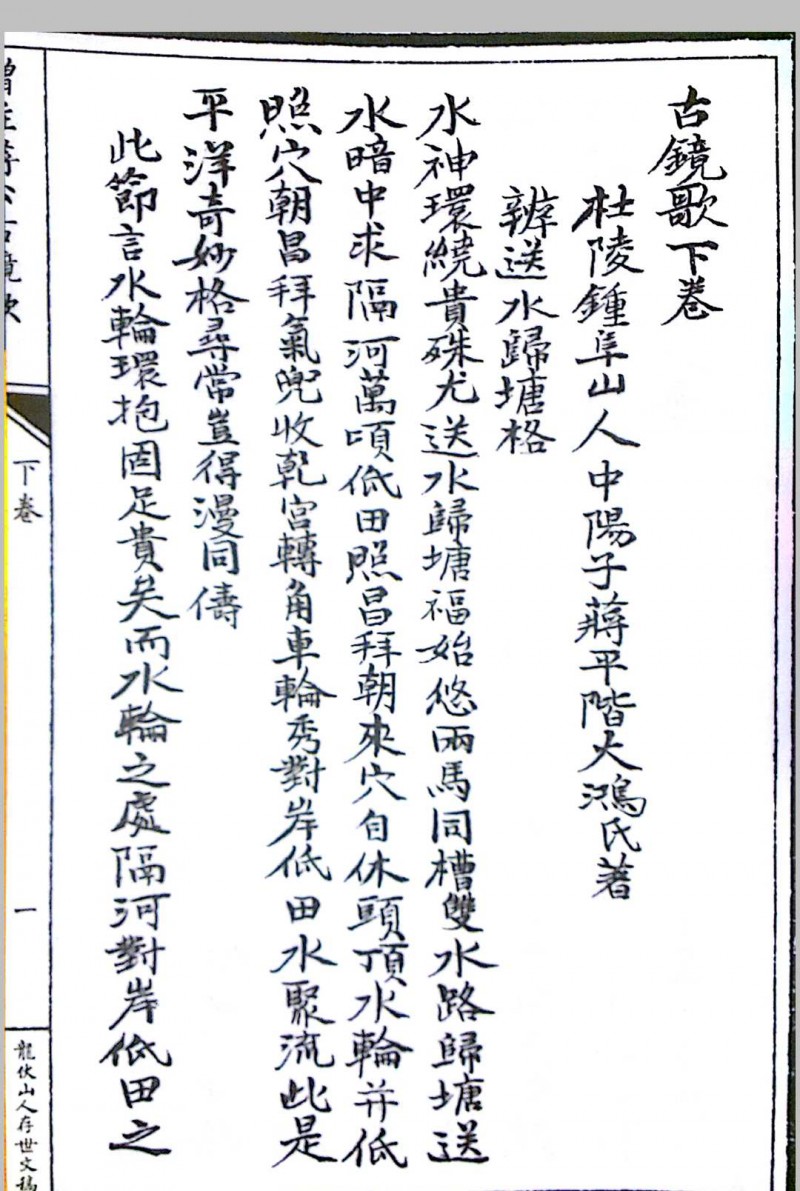 古鏡歌下卷
杜陵鍾阜山人中陽子蔣平階大鴻氏著
辨送水歸塘格
水神環繞貴殊尤送水歸塘福始悠兩馬同槽雙水路歸塘送
水暗中求隔河萬頃低田照昌拜朝來穴自休頭頂水輪并低
照穴朝昌拜氣兜收乾宮轉角車輪秀對岸低田水聚流此是
平洋奇妙格尋常豈得漫同儔
此節言水輪環抱固足貴矣而水輪之處隔河對岸低田之
下卷
一
龍伏山人存世文稿